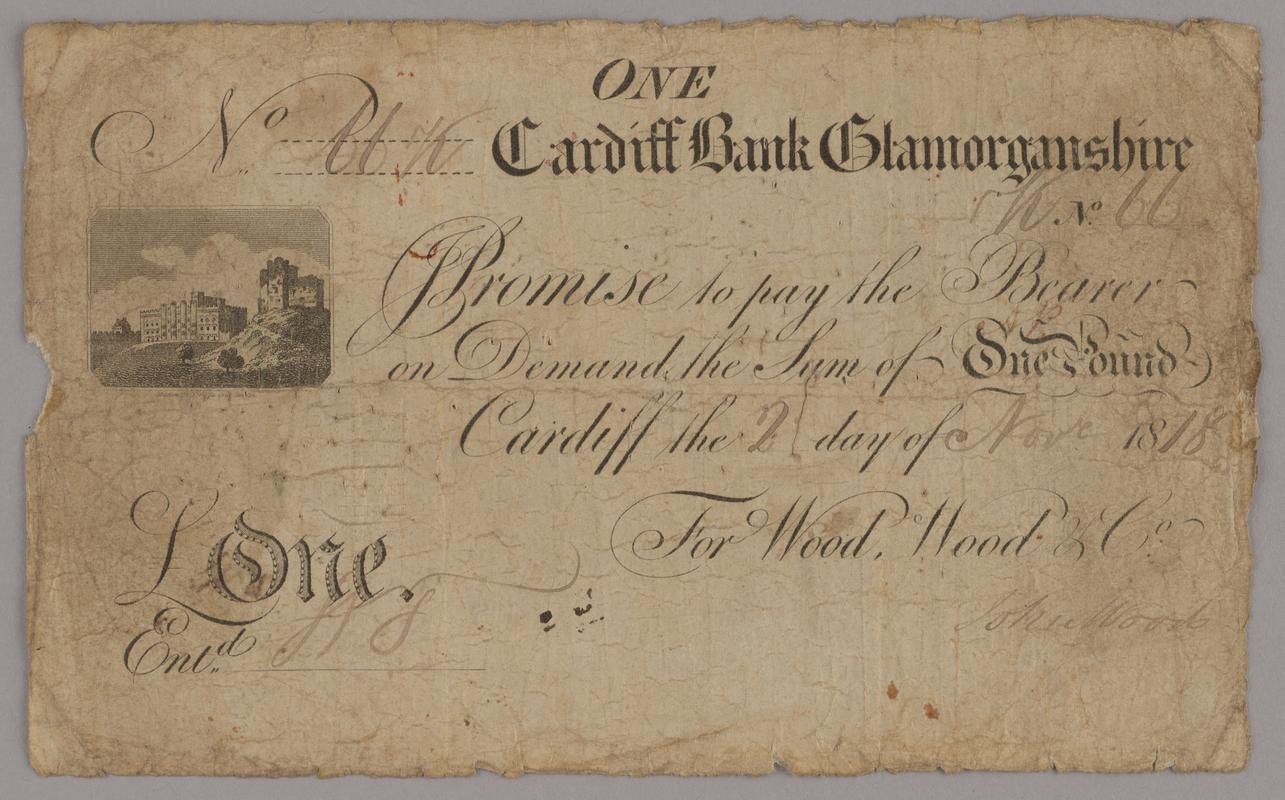 ONE
No 66 K Cardiff Bank Glamorganshire
K No 66
I Promise to pay the Bearer
on Demand, the Sum of One Pound
Cardiff the 2 day of Novr 1818
For Wood, Wood & Co.
£ One.
John Wood
Entd